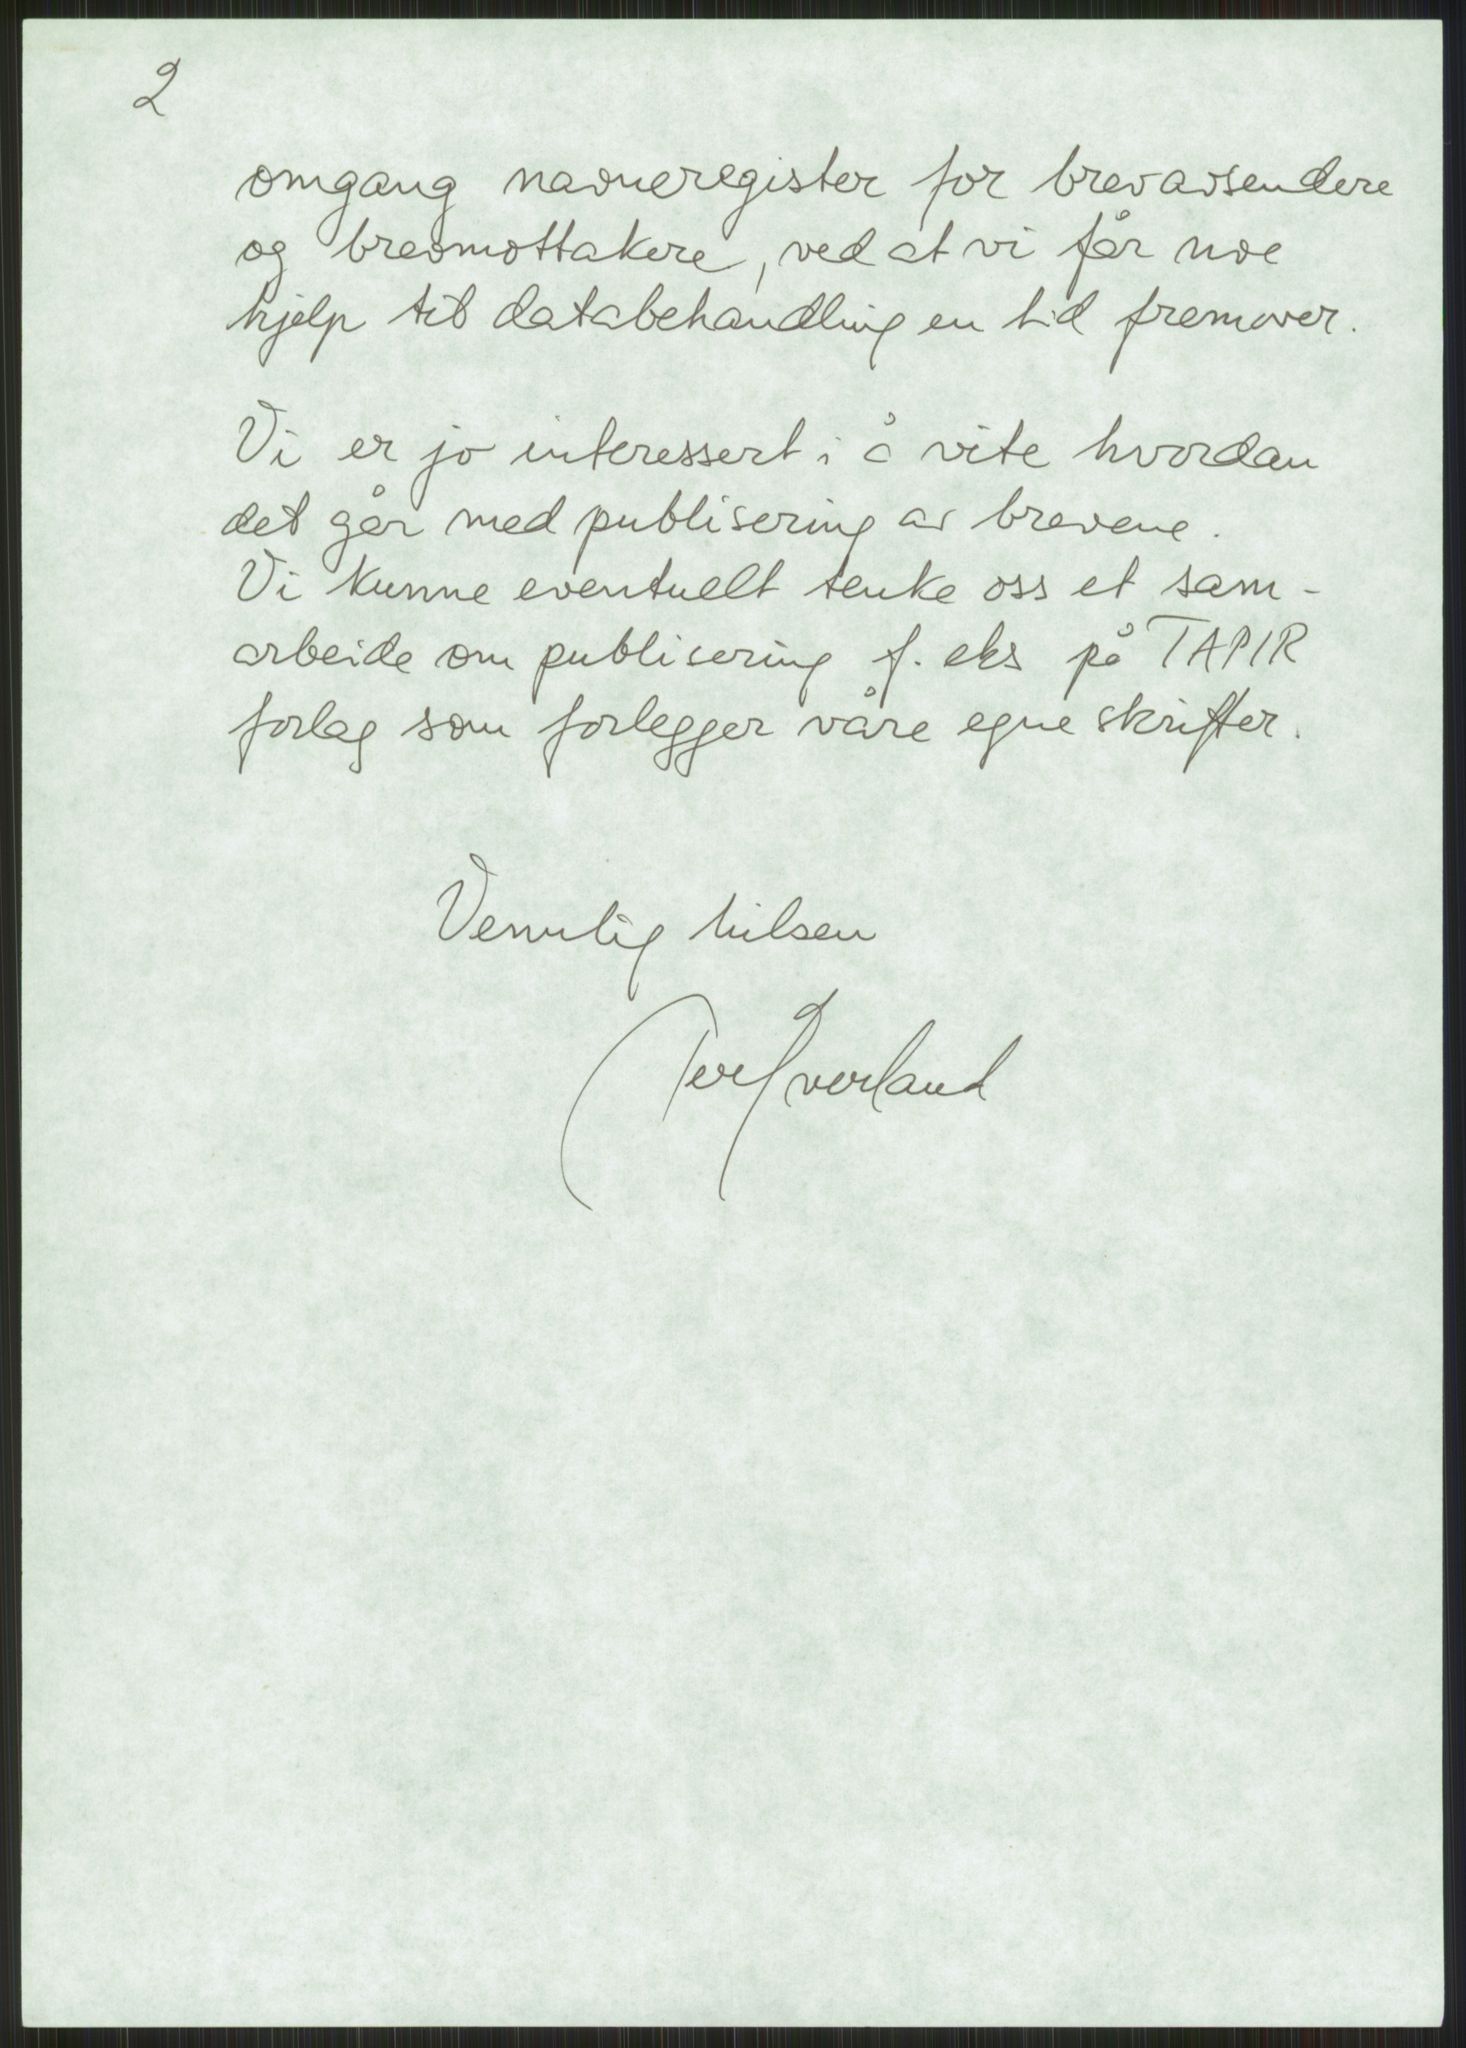 2
omgang navneregister for brevavsendere
og brevmottakere, ved at vi får noe
hjelp til databehandling en tid fremover.
Vi er jo interessert i å vite hvordan
det går med publisering av brevene.
Vi kunne eventuelt tenke oss et sam-
arbeide om publisering f. eks på TAPIR
forlag som forlegger våre egne skrifter.
Vennlig hilsen
Per Øverland